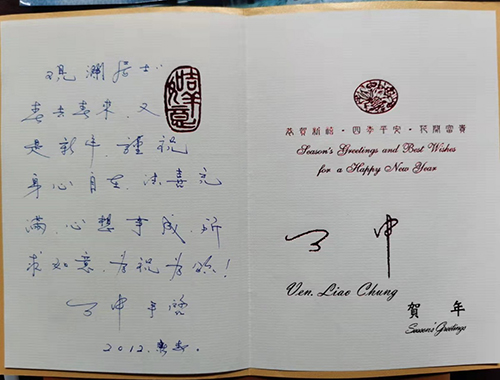 观澜居士
春去春来,又
是新年,謹祝
身心自在,法喜充
滿,心想事成,所
求如意,為祝為頌!
了中手啓
2012.
吉祥如意
恭賀新禧・四季平安・花開富貴
Season's Greetings and Best Wishes
for a Happy New Year
了中
Ven. Liao Chung
賀年
Season's Greetings